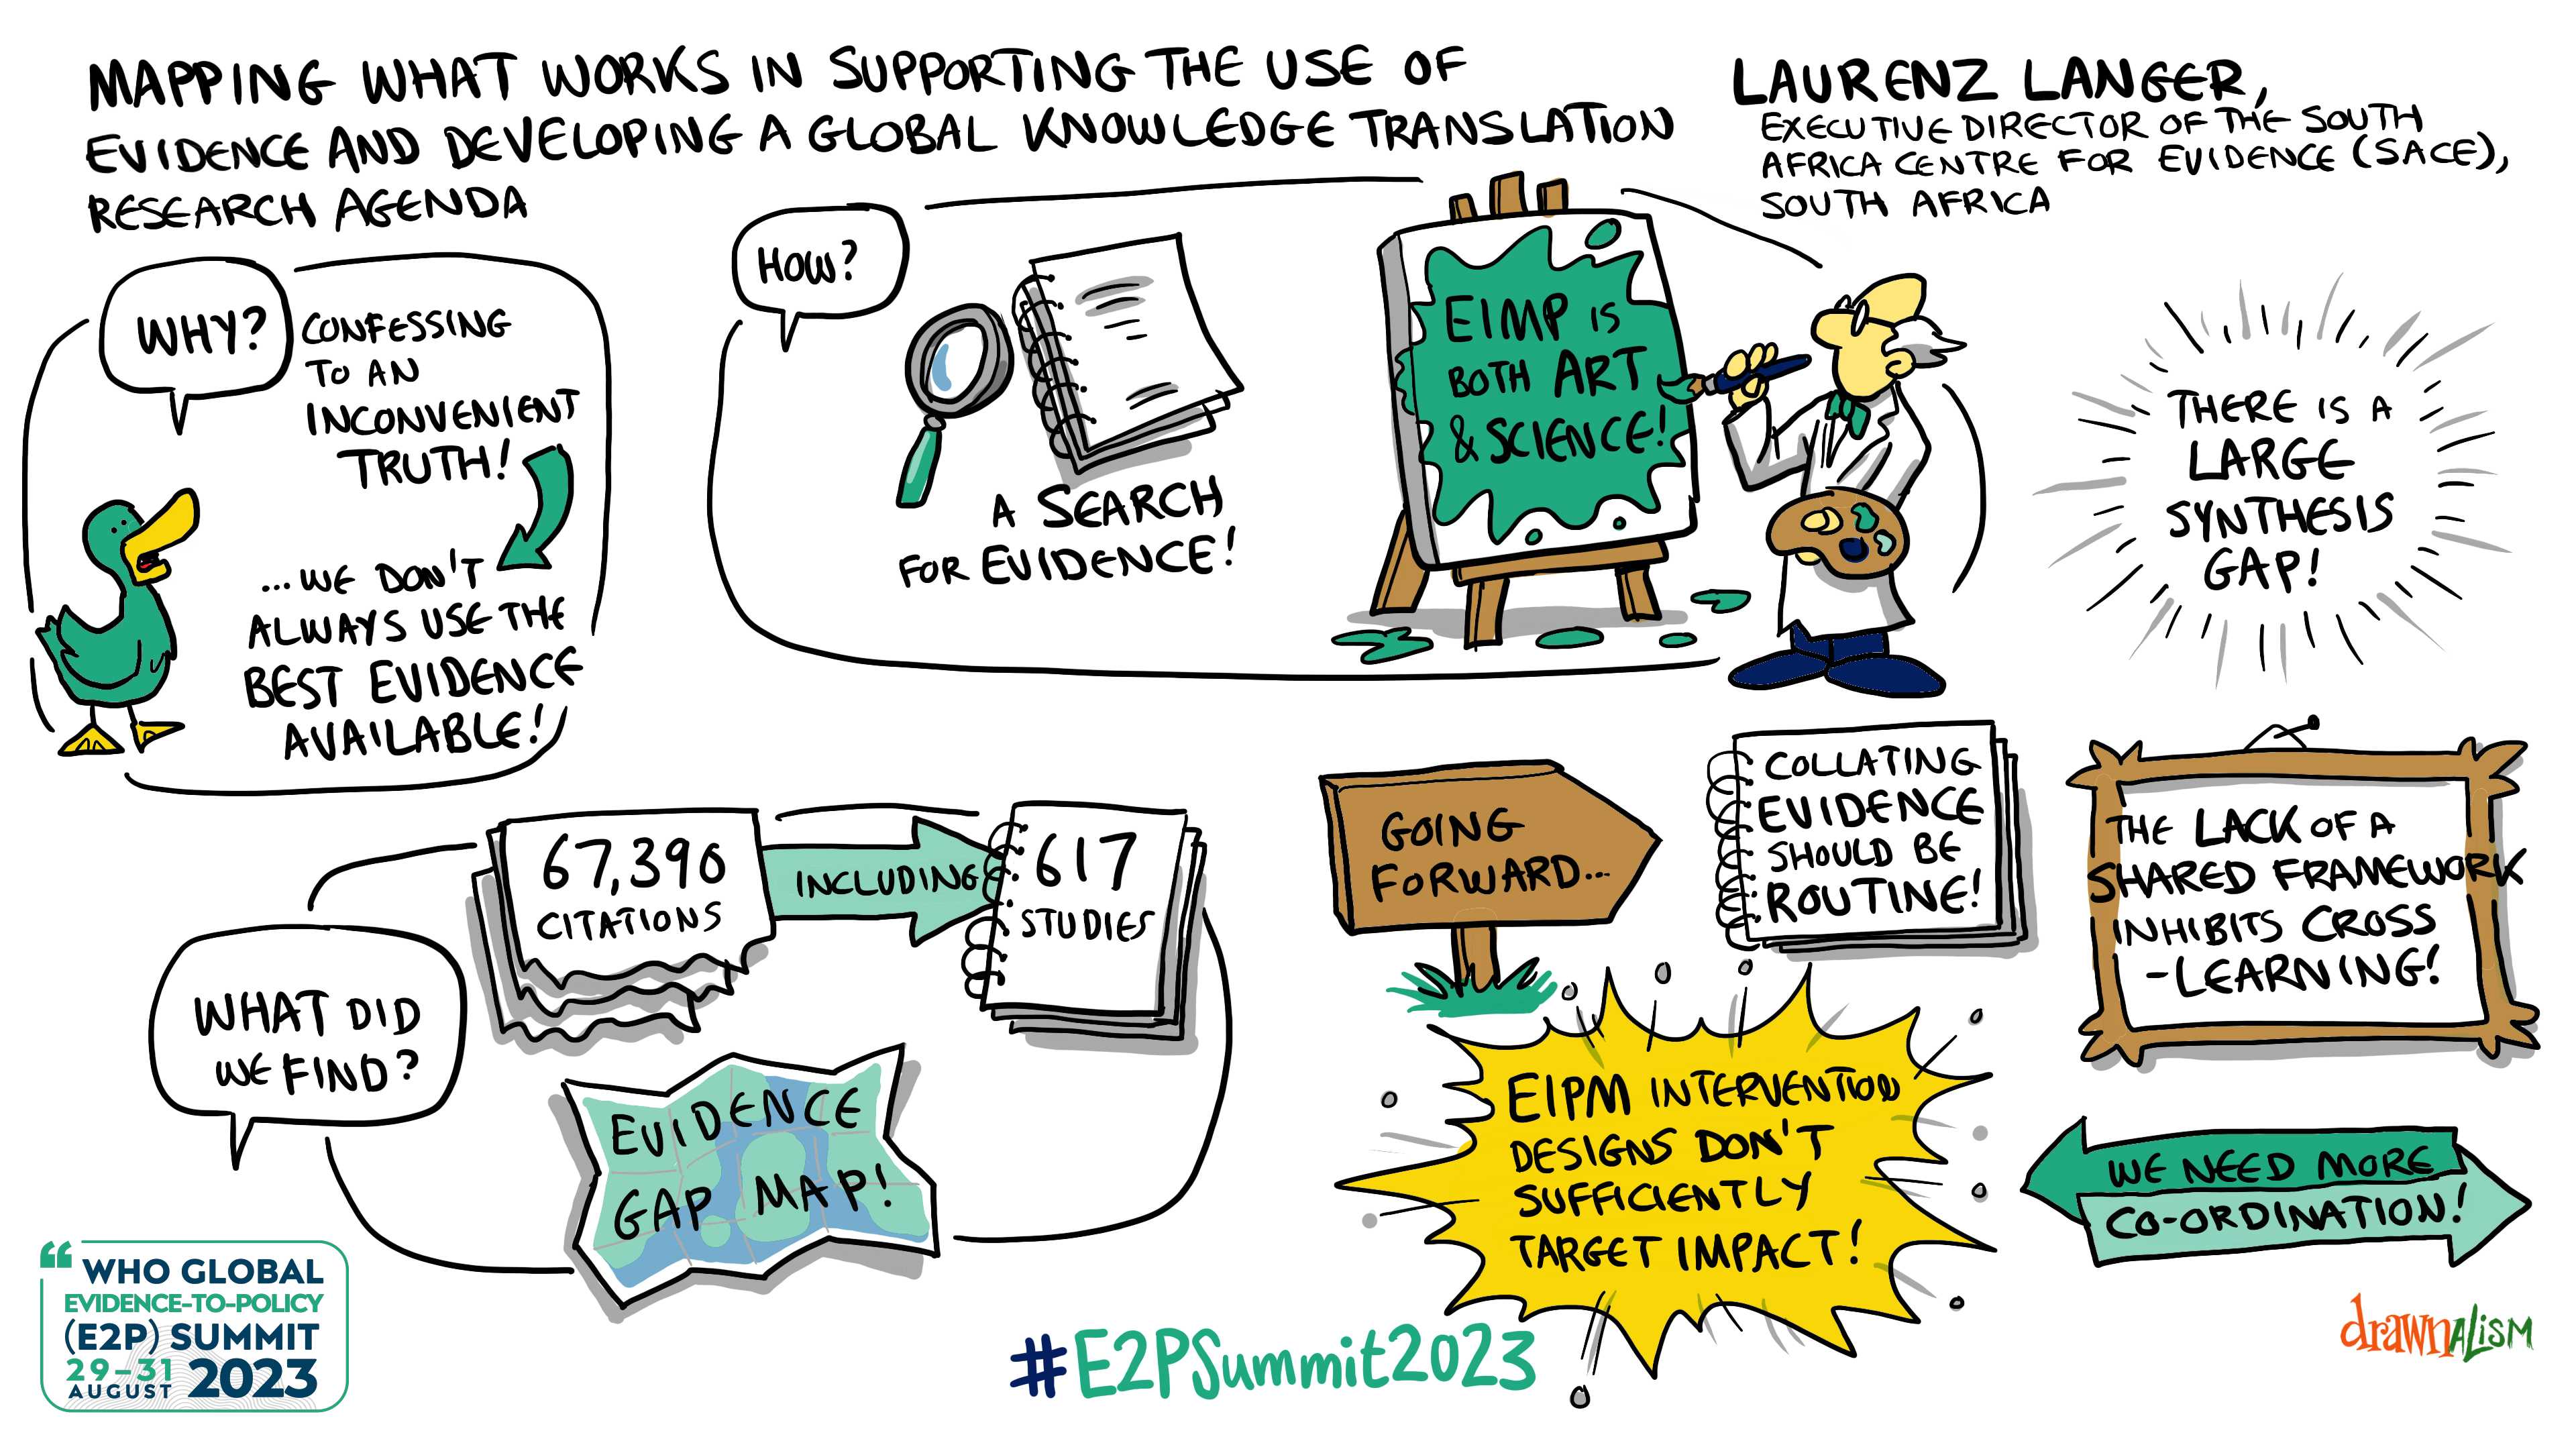 MAPPING WHAT WORKS IN SUPPORTING THE USE OF
EVIDENCE AND DEVELOPING A GLOBAL KNOWLEDGE TRANSLATION
RESEARCH AGENDA
LAURENZ LANGER,
EXECUTIVE DIRECTOR OF THE SOUTH
AFRICA CENTRE FOR EVIDENCE (SACE),
SOUTH AFRICA
WHY?
CONFESSING
TO AN
INCONVENIENT
TRUTH!
...WE DON'T
ALWAYS USE THE
BEST EVIDENCE
AVAILABLE!
HOW?
A SEARCH
FOR EVIDENCE!
EIMP IS
BOTH ART
& SCIENCE!
THERE IS A
LARGE
SYNTHESIS
GAP!
WHAT DID
WE FIND?
67,390
CITATIONS
INCLUDING
617
STUDIES
EVIDENCE
GAP MAP!
GOING
FORWARD...
COLLATING
EVIDENCE
SHOULD BE
ROUTINE!
THE LACK OF A
SHARED FRAMEWORK
INHIBITS CROSS
-LEARNING!
EIPM INTERVENTION
DESIGNS DON'T
SUFFICIENTLY
TARGET IMPACT!
WE NEED MORE
CO-ORDINATION!
“ WHO GLOBAL
EVIDENCE-TO-POLICY
(E2P) SUMMIT
29-31
AUGUST 2023
#E2PSummit2023
drawnalism